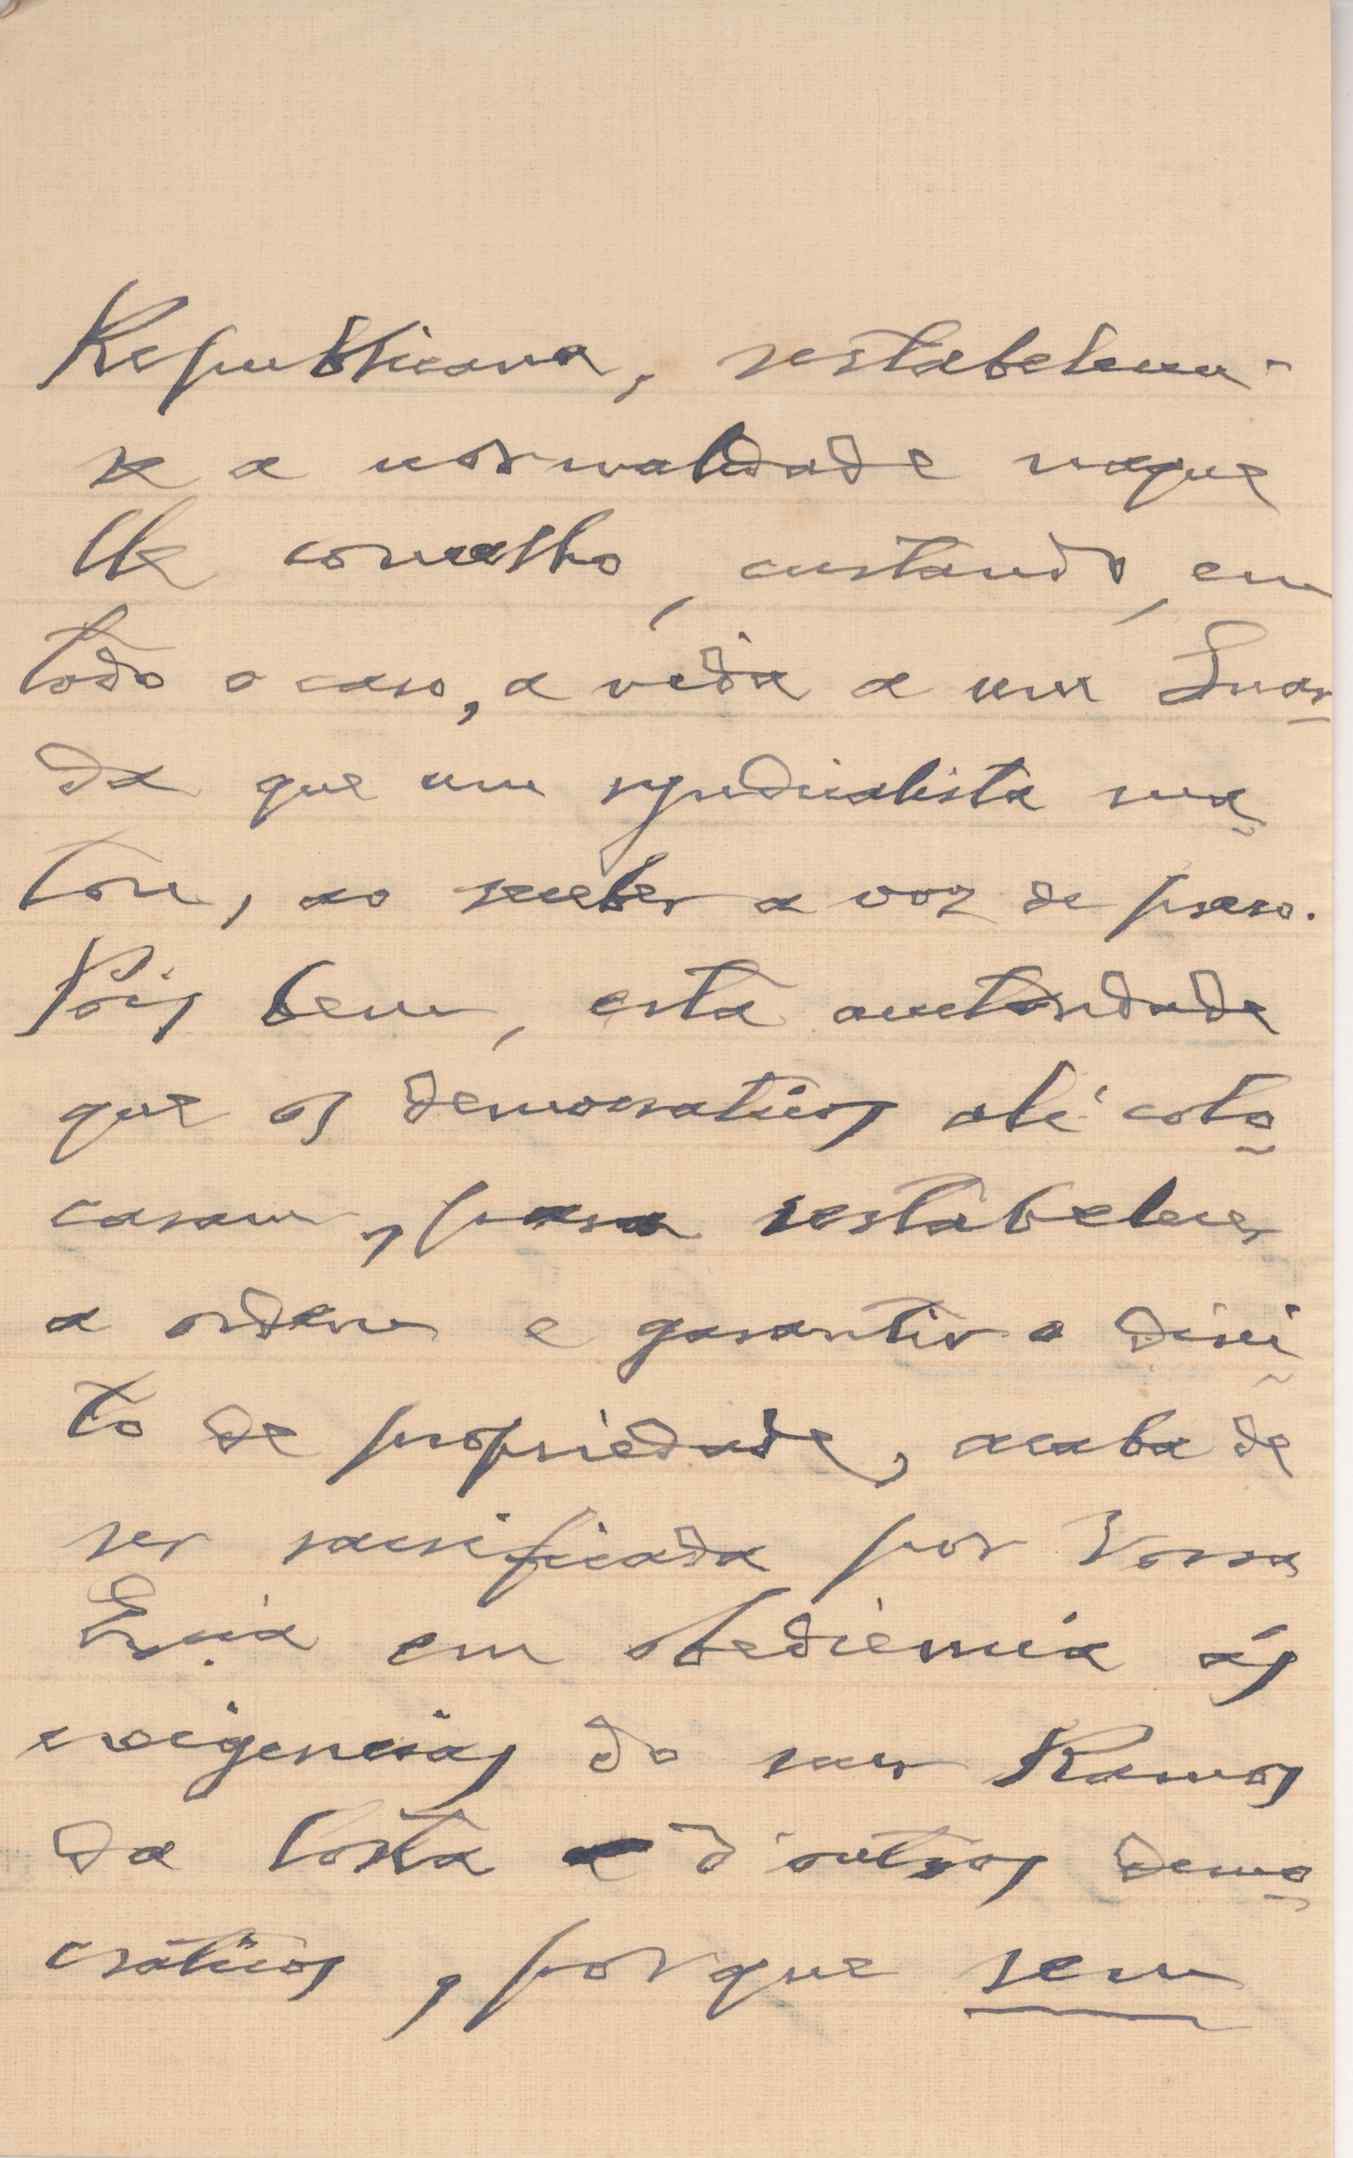 Republicana, restabeleceu-
se a normalidade naque
lle concelho, custando, em
todo o caso, a vida a um Guar-
da que um syndicalista ma-
tou, ao receber a voz de preso.
Pois bem, esta auctoridade
que os democraticos ali colo-
caram, para restabelecer
a ordem e garantir o direi-
to de propriedade, acaba de
ser sacrificada por Vossa
Excia em obediencia ás
exigencias do snr Ramos
da Costa e d'outros demo-
craticos, porque sem